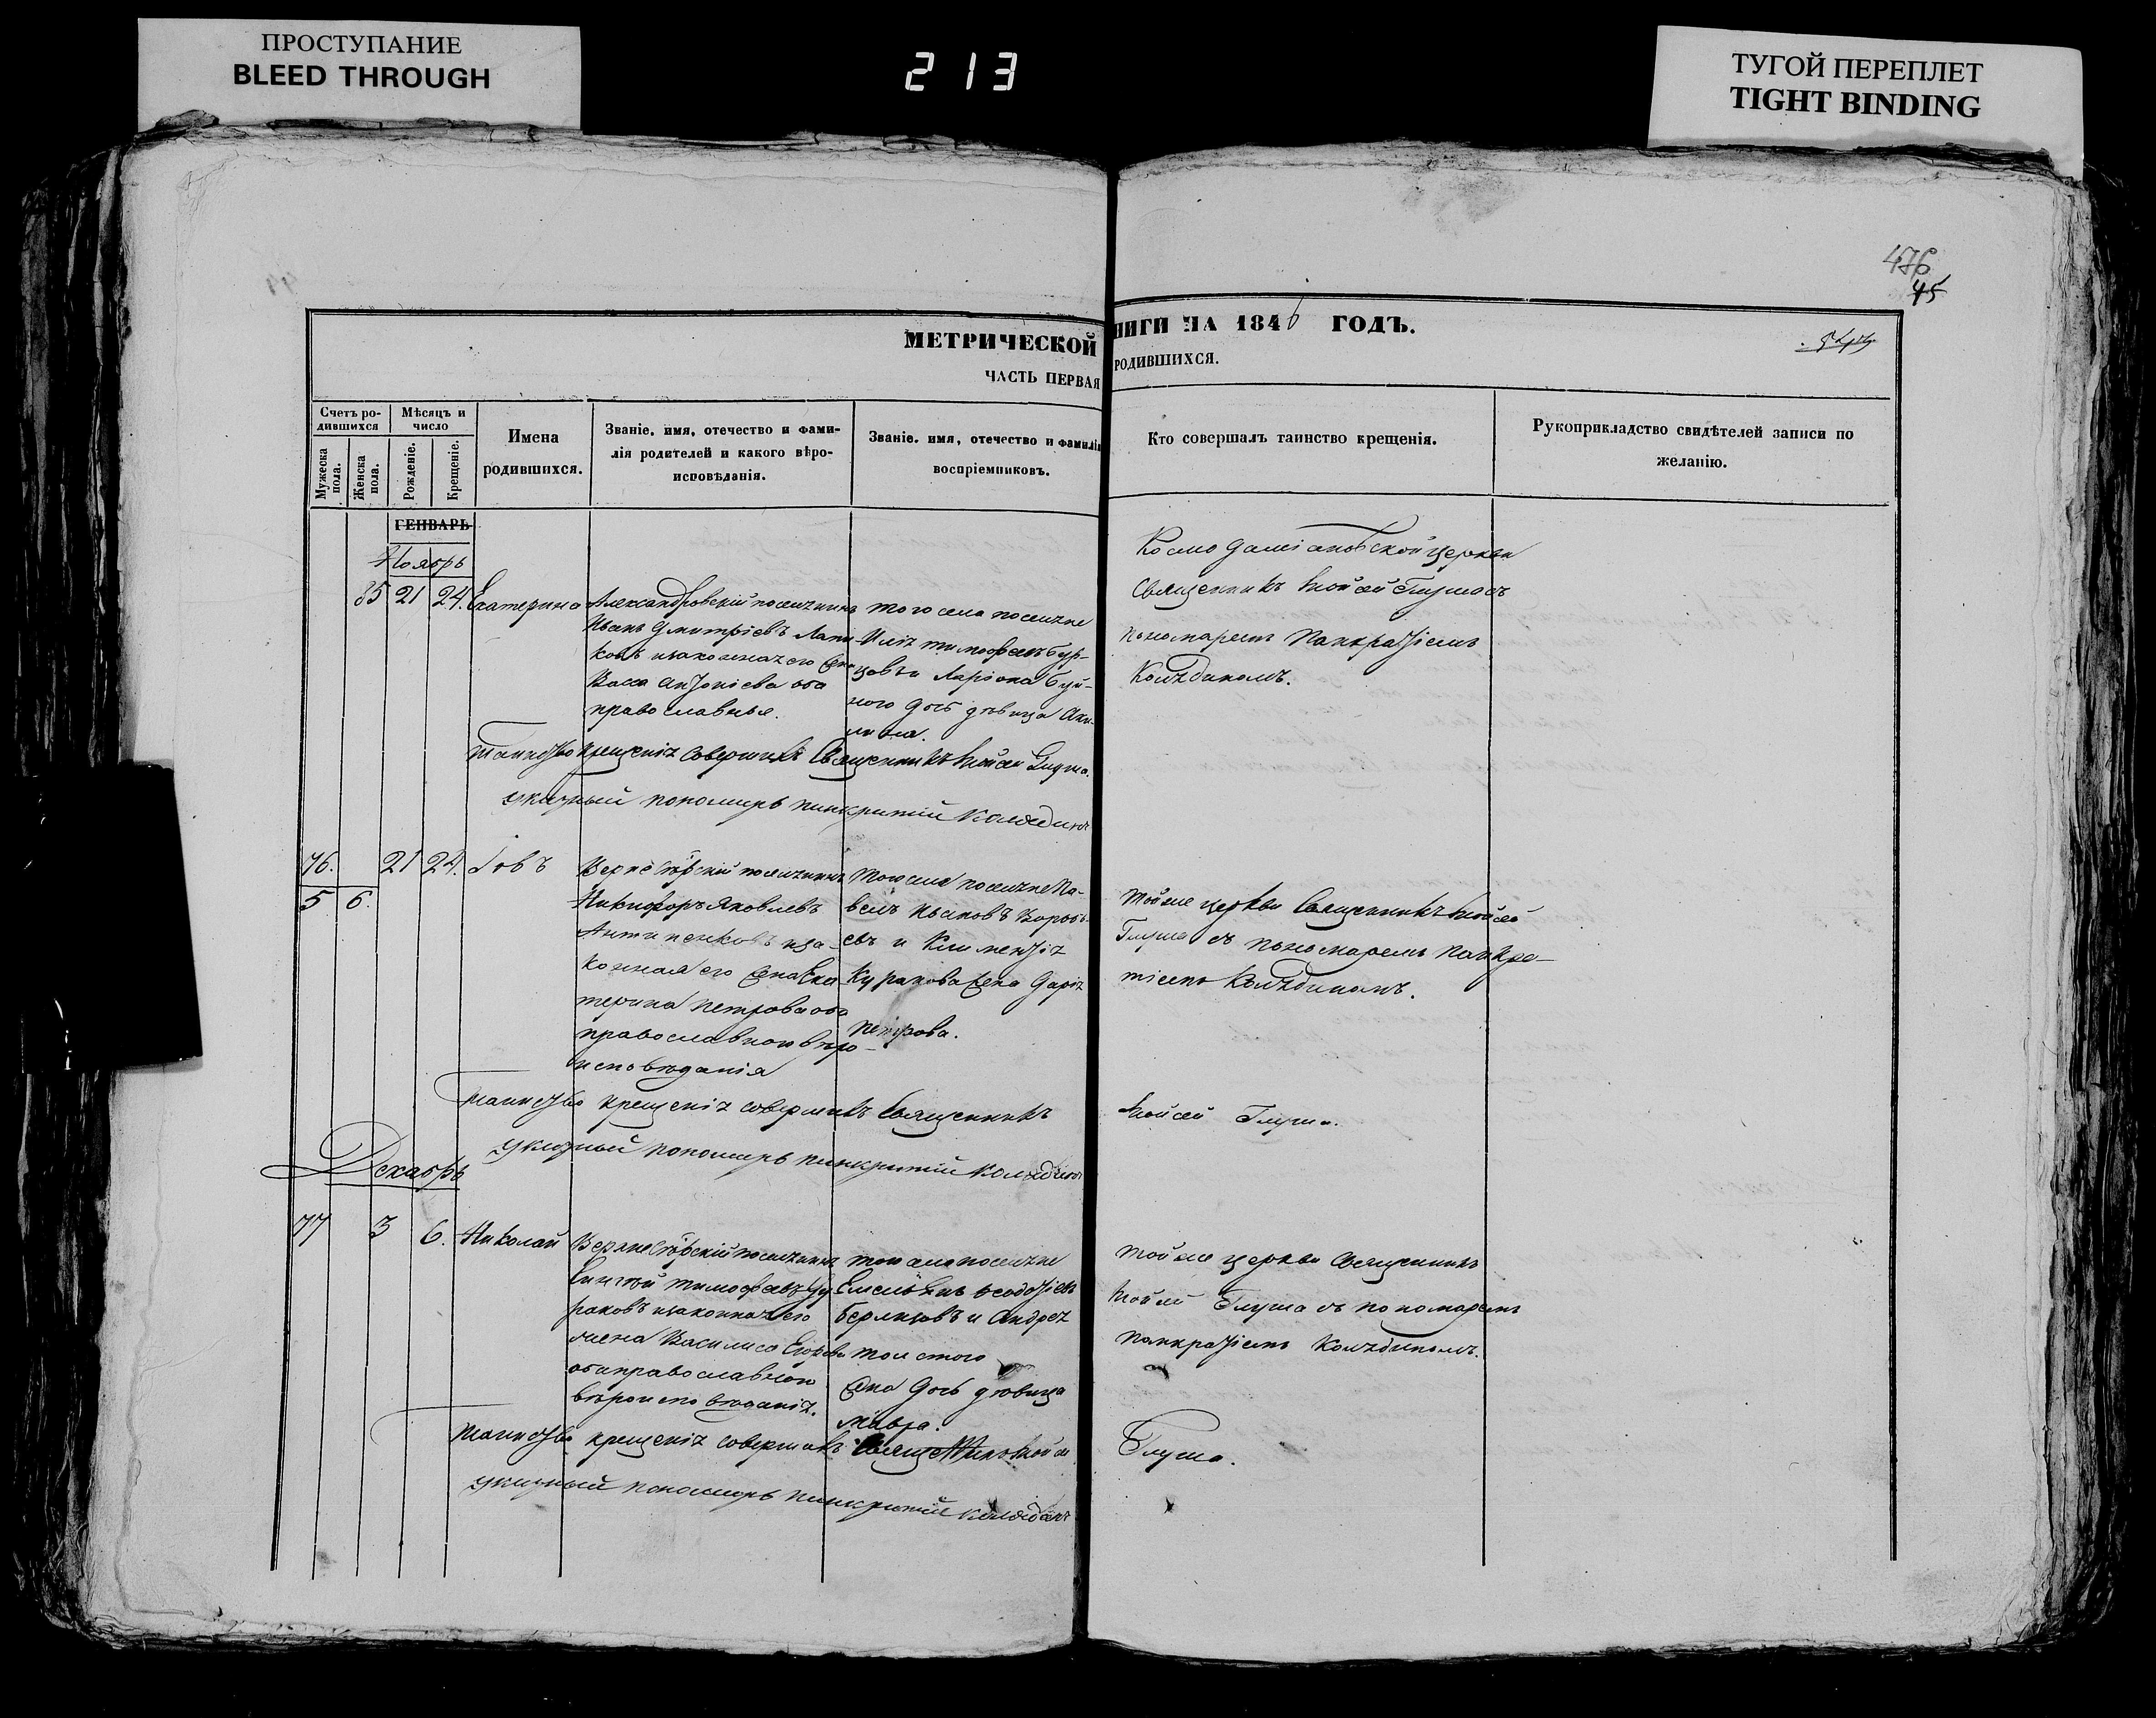 ПРОСТУПАНИЕ
BLEED THROUGH
213
ТУГОЙ ПЕРЕПЛЕТ
TIGHT BINDING
476
45
МЕТРИЧЕСКОЙ
НИГИ НА 1846 ГОДЪ.
ЧАСТЬ ПЕРВАЯ
РОДИВШИХСЯ.
Счетъ ро-
дившихся
Мѣсяцъ и
число
Мужеска
пола.
Женска
пола.
Рожденіе.
Крещеніе.
Имена
родившихся.
Званіе, имя, отечество и фами-
лія родителей и какого вѣро-
исповѣданія.
Званіе, имя, отечество и фамилія
воспріемниковъ.
Кто совершалъ таинство крещенія.
Рукоприкладство свидѣтелей записи по
желанію.
ГЕНВАРЬ
Ноябрь
85 21 24. Екатерина
Александровскій поселянинъ
Иванъ Дмитріевъ
ковъ изаконная его жена
Васса Антоніева оба
православные.
того села поселяне
Илія Тимофеевъ Бур-
цовъ и Ларіона Буй-
ного дочь дѣвица Аку-
лина.
Космодаміановской церкви
Священникъ Мойсей Глуша съ
пономаремъ Панкратіемъ
Колядиномъ.
Таинство крещенія совершилъ Священникъ Мойсей Глуша.
указный пономарь Панкратій Колядинъ
76. 21 24. Іовъ
5 6.
поселянинъ
Никифоръ Яковлевъ
Антипенковъ иза-
конная его жена Ека
терина Петрова оба
православного вѣро-
исповѣданія
того села поселяне Па-
велъ Ивановъ Вороб-
евъ и Климентія
Куракова жена Дарія
Петрова.
Той же церкви Священникъ Мойсей
Глуша съ пономаремъ Панкра-
тіемъ Колядиномъ.
Таинство крещенія совершилъ Священникъ
Мойсей Глуша.
указный пономарь Панкратій Колядинъ
Декабрь
77 3 6. Николай
поселянинъ
Тимофеевъ
раковъ изаконная его
жена Василиса Егорова
оба православного
вѣроисповѣданія.
того села поселяне
Емельянъ Феодосіевъ
и Андрея
Толстого
дочь дѣвица
Мавра.
Той же церкви Священникъ
Мойсей Глуша съ пономаремъ
Панкратіемъ Колядиномъ.
Таинство крещенія совершилъ Священникъ Мойсей
Глуша.
указный пономарь Панкратій Колядинъ